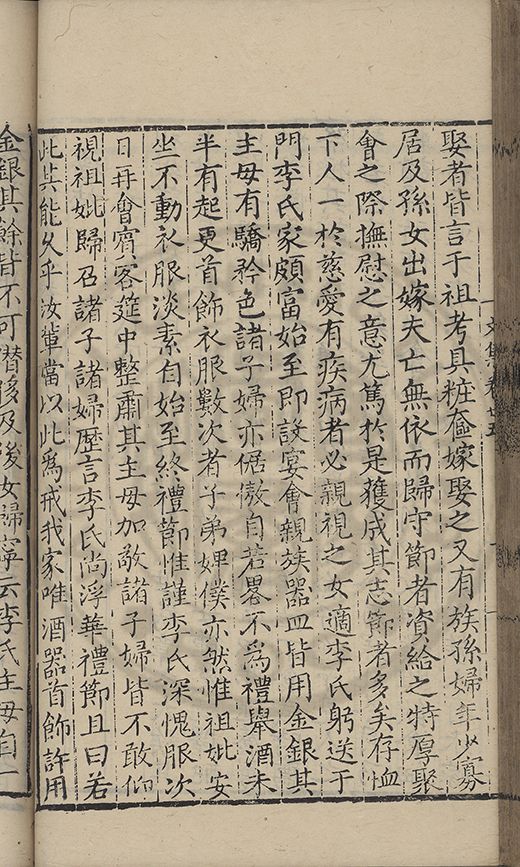 娶者皆言于祖考具粧奩嫁娶之又有族孫婦年少寡
居及孫女出嫁夫亡無依而歸守節者資給之特厚聚
會之際撫慰之意尤篤於是獲成其志節者多矣存恤
下人一於慈愛有疾病者必親視之女適李氏躬送于
門李氏家頗富始至即設宴會親族器皿皆用金銀其
主母有驕矜色諸子婦亦倨傲自若畧不為禮舉酒未
半有起更首飾衣服數次者子弟婢僕亦然惟祖妣安
坐不動衣服淡素自始至終禮節惟謹李氏深愧服次
日再會賓客筵中整肅其主母加敬諸子婦皆不敢仰
視祖妣歸召諸子諸婦歷言李氏尚浮華禮節且曰若
此其能久乎汝軰當以此為戒我家唯酒器首飾許用
金銀其餘皆不可僭侈及後女歸寧云李氏主母自一
文集卷廿五